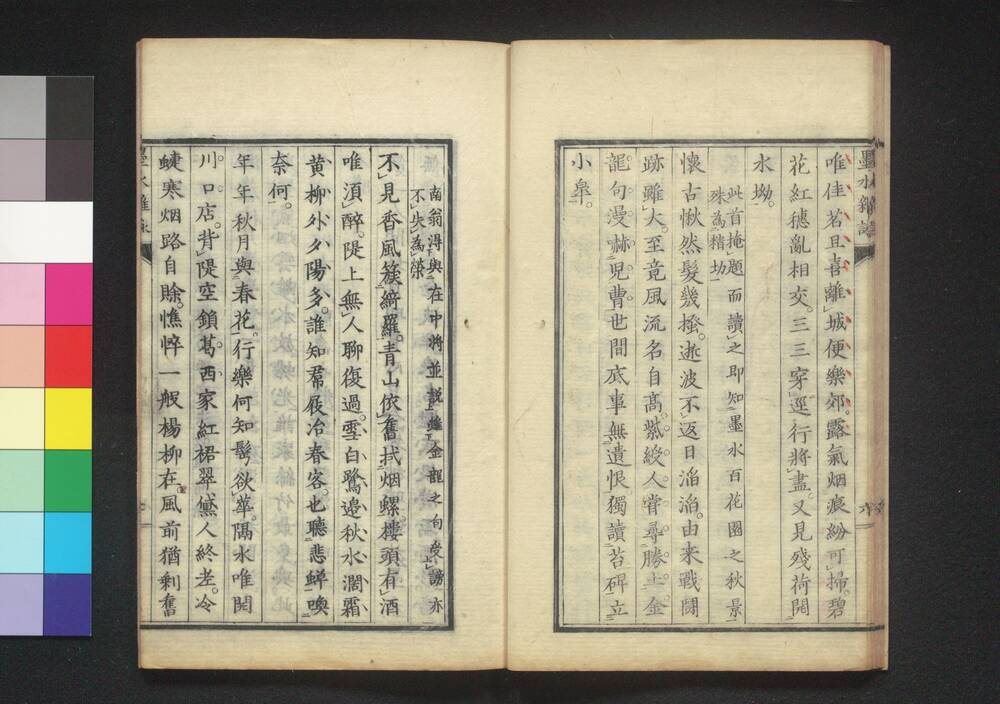 墨水雜詠
唯佳若且喜離城便樂郊露氣烟痕紛可掃碧
花紅穗亂相交三三穿逕行將盡又見殘荷閙
水坳
此首掩題而讀之即知墨水百花園之秋景
殊為精功
懷古愀然髮幾搔逝波不返日滔滔由来戰鬪
跡雖大至竟風流名自高紫綬人嘗尋勝士金
龍句漫嚇児曹世間底事無遺恨獨讀苔碑立
小皐
南翁淂與在中将並説雖金龍之句受謗亦
不失為榮
不見香風簇綺羅青山依舊拭烟螺樓頭有酒
唯湏醉隄上無人聊復過雪白鷺邉秋水濶霜
黄柳外夕陽多誰知屐冶春客也聽悲蝉喚
奈何
年年秋月與春花行樂何知髩欲華隔水唯聞
川口店背隄空鎖葛西家紅裙翠黛人終老冷
蜨寒烟路自賖憔悴一般楊柳在風前猶剩舊
墨水雜詠